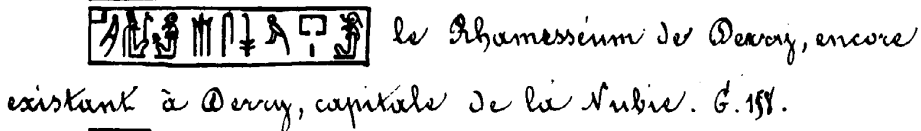 le Rhamesséum de Derry, encore
existant à Derry, capitale de la Nubie. G.